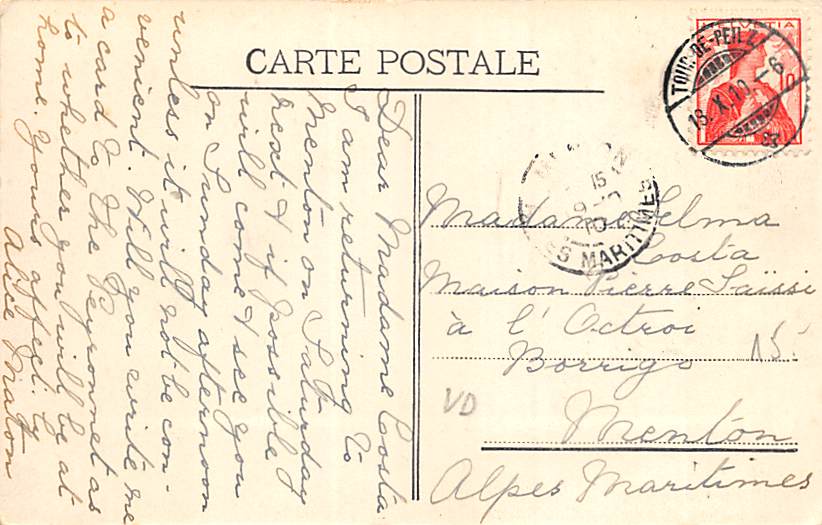 CARTE POSTALE
HELVETIA
TOUR-DE-PEILZ
18.X.10.-6
15
MARITIMES
Dear Madame Costa
I am returning to
Menton on Saturday
next & if possible
will come & see you
on Sunday afternoon
unless it will not be con-
venient. Will you write me
a card to the Peyronnet as
to whether you will be at
home. Yours affect.ly
Alice Maton
Madame Selma
Costa
Maison Pierre Saïssi
à l' Octroi
Borrigo
Menton
Alpes Maritimes
VD